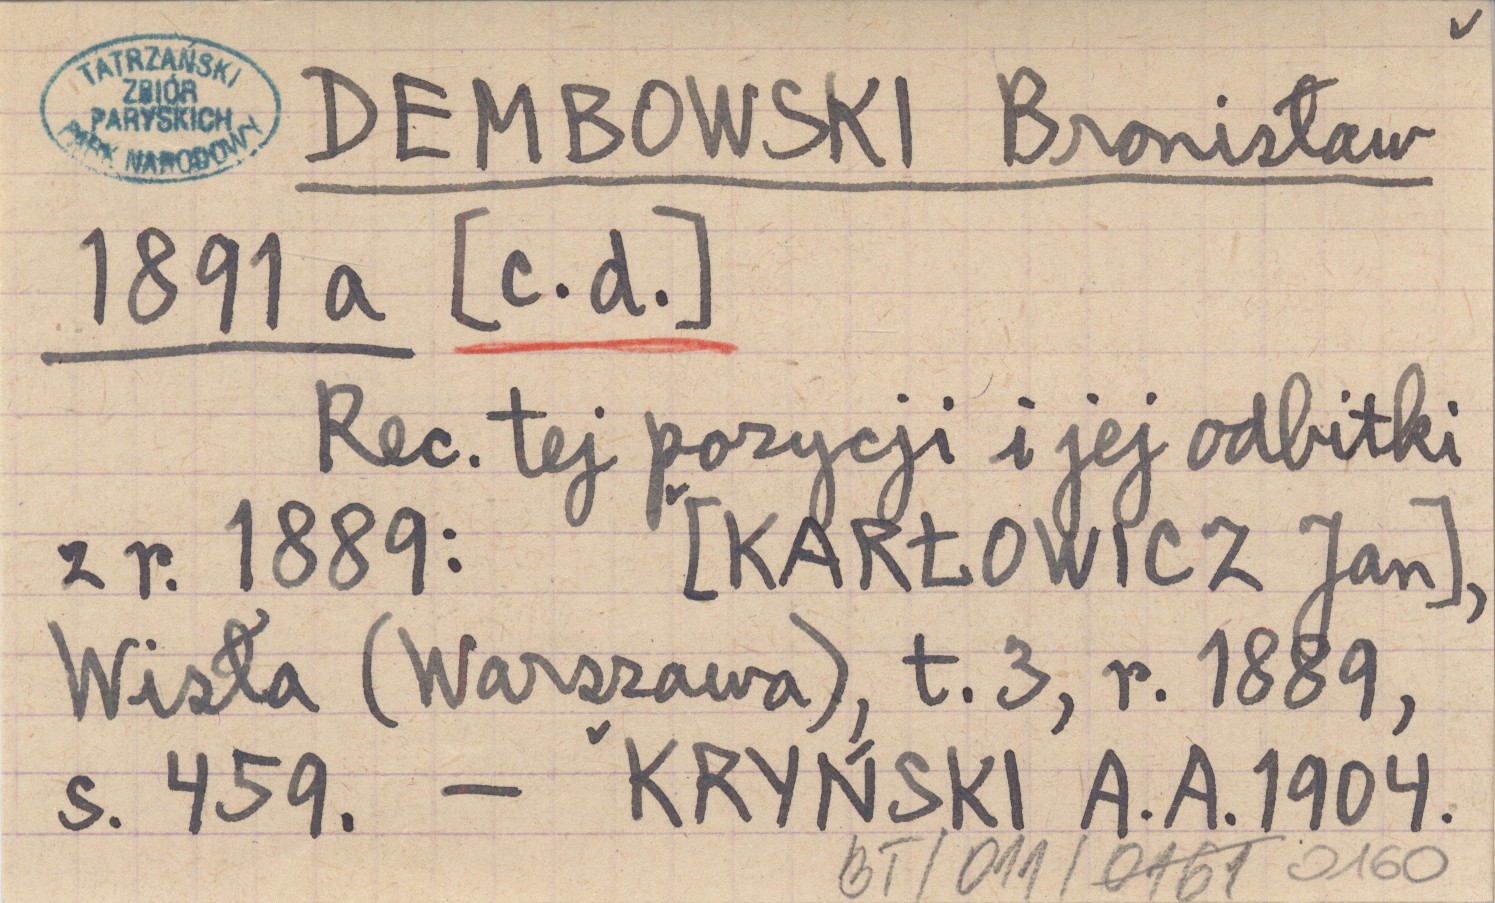 ✓
TATRZAŃSKI
ZBIÓR
PARYSKICH
PARK NARODOWY
DEMBOWSKI Bronisław
1891a [c.d.]
Rec. tej pozycji i jej odbitki
z r. 1889: ✓[KARŁOWICZ Jan],
Wisła (Warszawa), t. 3, r. 1889,
s. 459. — ✓KRYŃSKI A.A. 1904.
BT/011/0161 0160